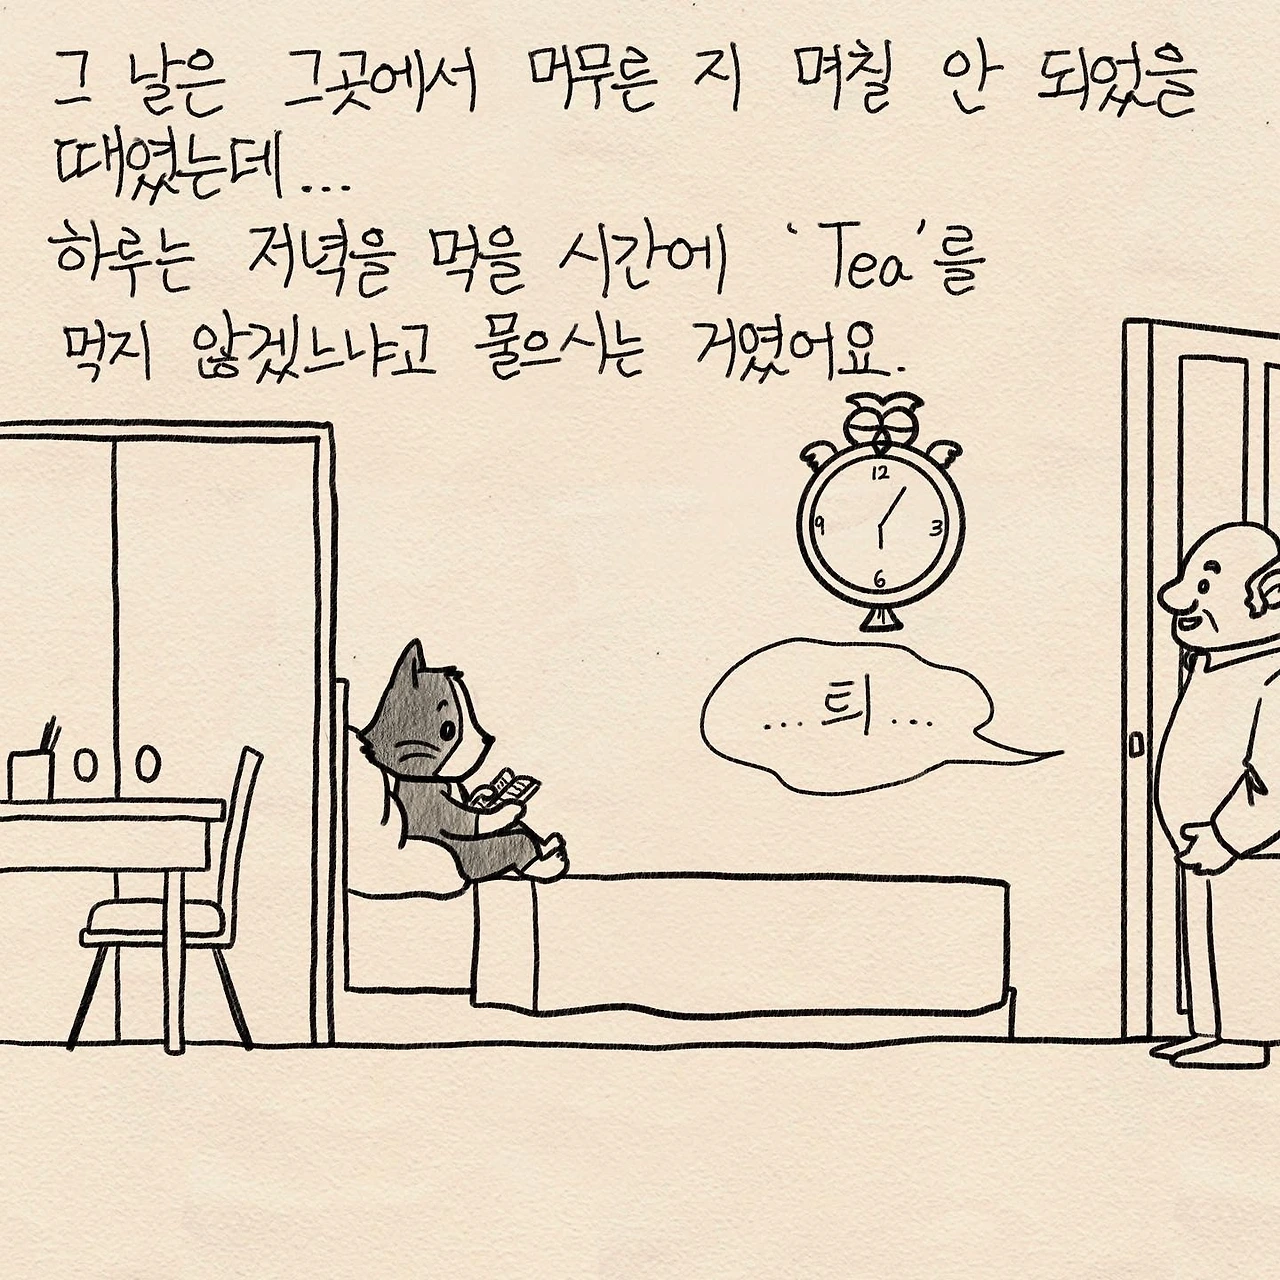 그 날은 그곳에서 머무른 지 며칠 안 되었을
때였는데...
하루는 저녁을 먹을 시간에 'Tea'를
먹지 않겠느냐고 물으시는 거였어요.
12
9 3
6
... 티 ...